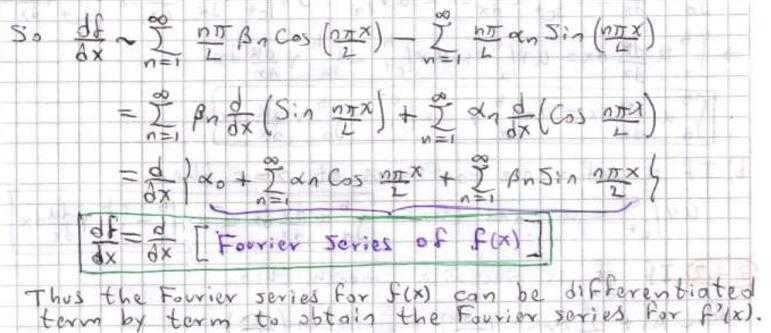 So df/dx ~ ∑_{n=1}^{∞} nπ/L βn Cos (nπx/L) − ∑_{n=1}^{∞} nπ/L αn Sin (nπx/L)
= ∑_{n=1}^{∞} βn d/dx (Sin nπx/L) + ∑_{n=1}^{∞} αn d/dx (Cos nπx/L)
= d/dx { α0 + ∑_{n=1}^{∞} αn Cos nπx/L + ∑_{n=1}^{∞} βn Sin nπx/L }
df/dx = d/dx [Fourier Series of f(x)]
Thus the Fourier series for f(x) can be differentiated
term by term to obtain the Fourier series for f'(x).